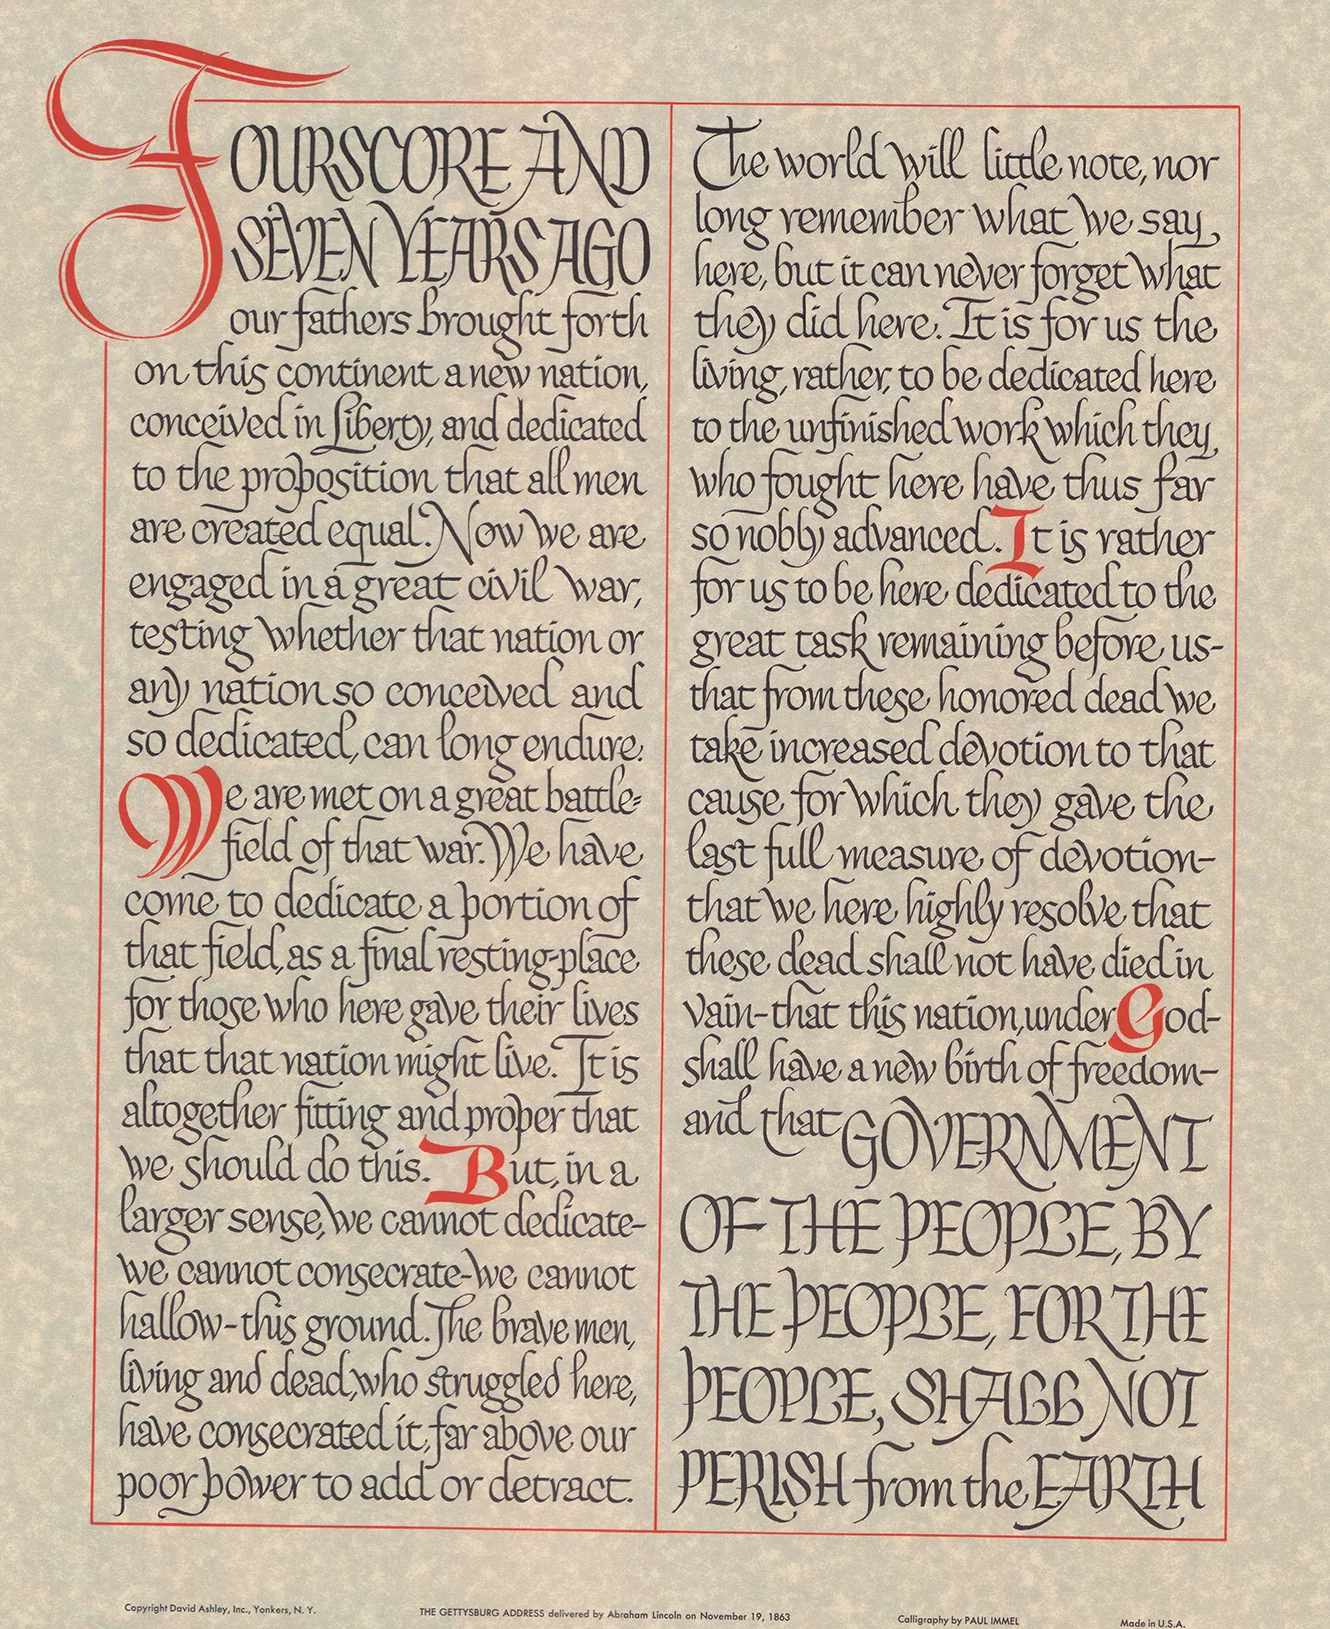 FOURSCORE AND
SEVEN YEARS AGO
our fathers brought forth
on this continent a new nation,
conceived in Liberty, and dedicated
to the proposition that all men
are created equal. Now we are
engaged in a great civil war,
testing whether that nation or
any nation so conceived and
so dedicated, can long endure.
We are met on a great battle=
field of that war. We have
come to dedicate a portion of
that field, as a final resting-place
for those who here gave their lives
that that nation might live. It is
altogether fitting and proper that
we should do this. But, in a
larger sense, we cannot dedicate-
we cannot consecrate-we cannot
hallow-this ground. The brave men,
living and dead, who struggled here,
have consecrated it, far above our
poor power to add or detract.
The world will little note, nor
long remember what we say
here, but it can never forget what
they did here. It is for us the
living, rather, to be dedicated here
to the unfinished work which they
who fought here have thus far
so nobly advanced. It is rather
for us to be here dedicated to the
great task remaining before us-
that from these honored dead we
take increased devotion to that
cause for which they gave the
last full measure of devotion-
that we here highly resolve that
these dead shall not have died in
vain-that this nation, under God-
shall have a new birth of freedom-
and that GOVERNMENT
OF THE PEOPLE, BY
THE PEOPLE, FOR THE
PEOPLE, SHALL NOT
PERISH from the EARTH
Copyright David Ashley, Inc., Yonkers, N. Y.
THE GETTYSBURG ADDRESS delivered by Abraham Lincoln on November 19, 1863
Calligraphy by PAUL IMMEL
Made in U.S.A.